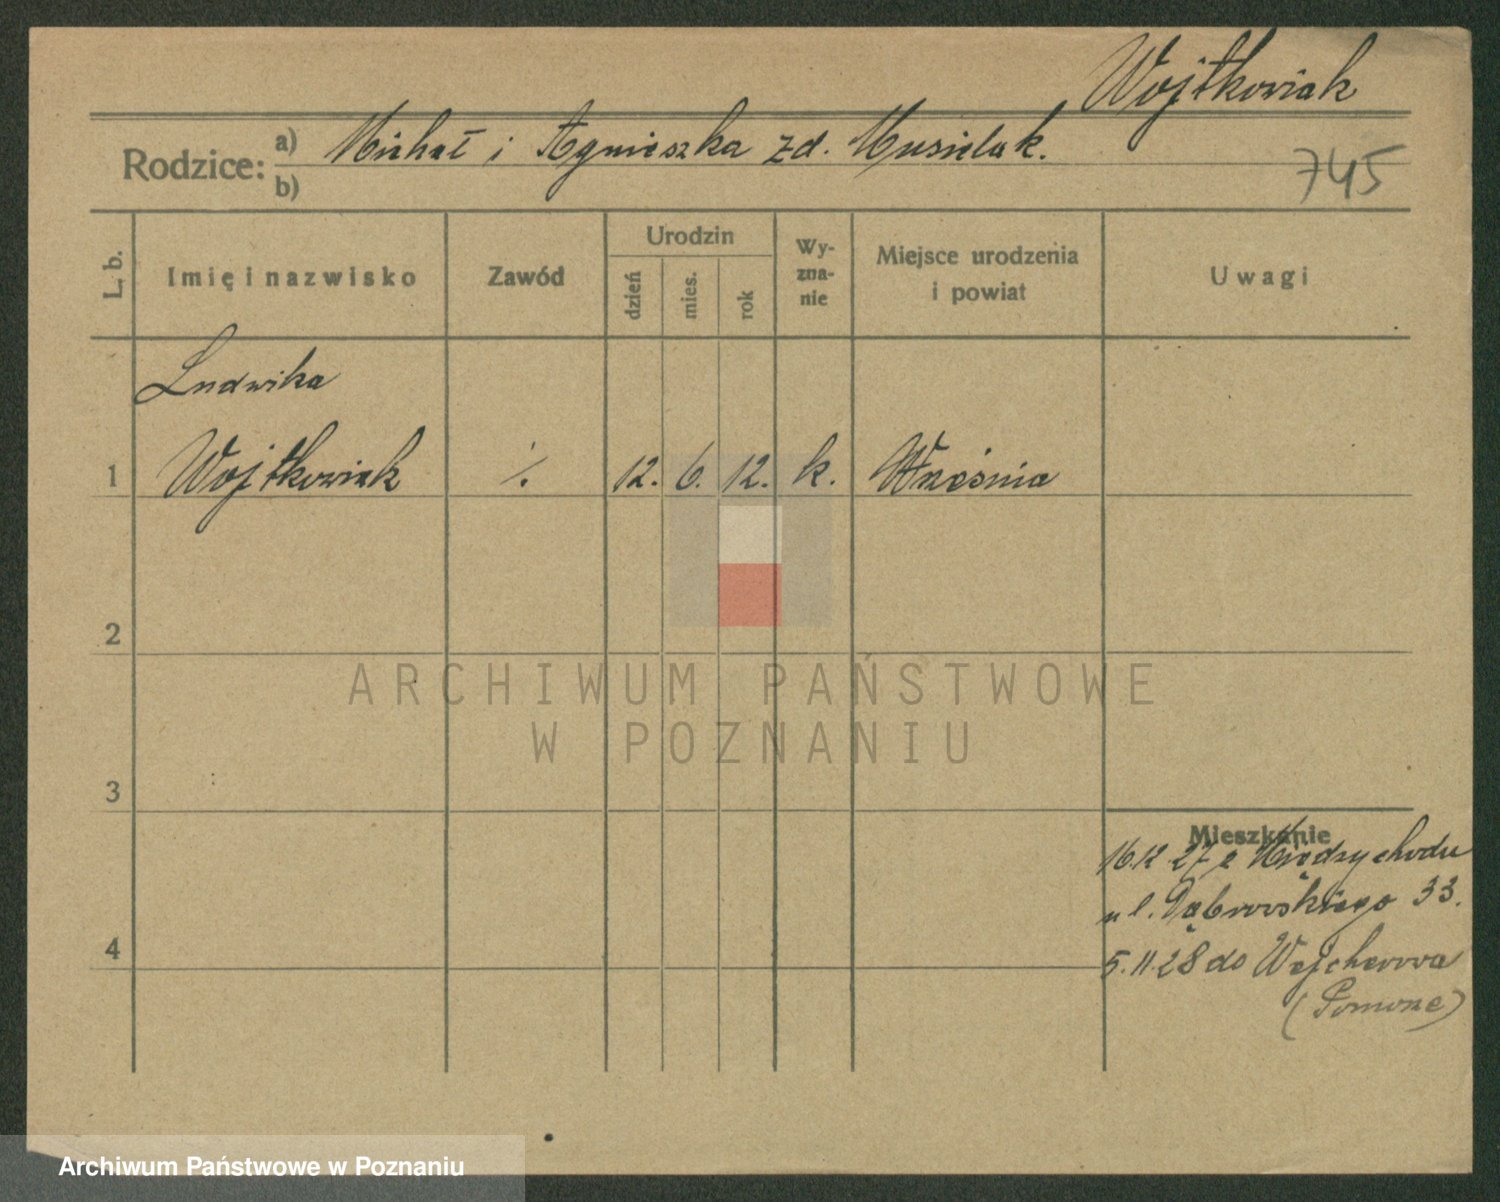 Wojtkowiak
Rodzice: a) Michał i Agnieszka zd. Musielak.
b)
745
L. b.
Imię i nazwisko
Zawód
Urodzin
dzień
mies.
rok
Wy-
zna-
nie
Miejsce urodzenia
i powiat
Uwagi
Ludwika
1 Wojtkowiak ·/. 12. 6. 12. k. Września
2
ARCHIWUM PAŃSTWOWE
W POZNANIU
3
Mieszkanie
16.12 27 z Międzychodu
ul. Dąbrowskiego 33.
4
5.11.28 do Wejcherowa
(Pomorze)
Archiwum Państwowe w Poznaniu